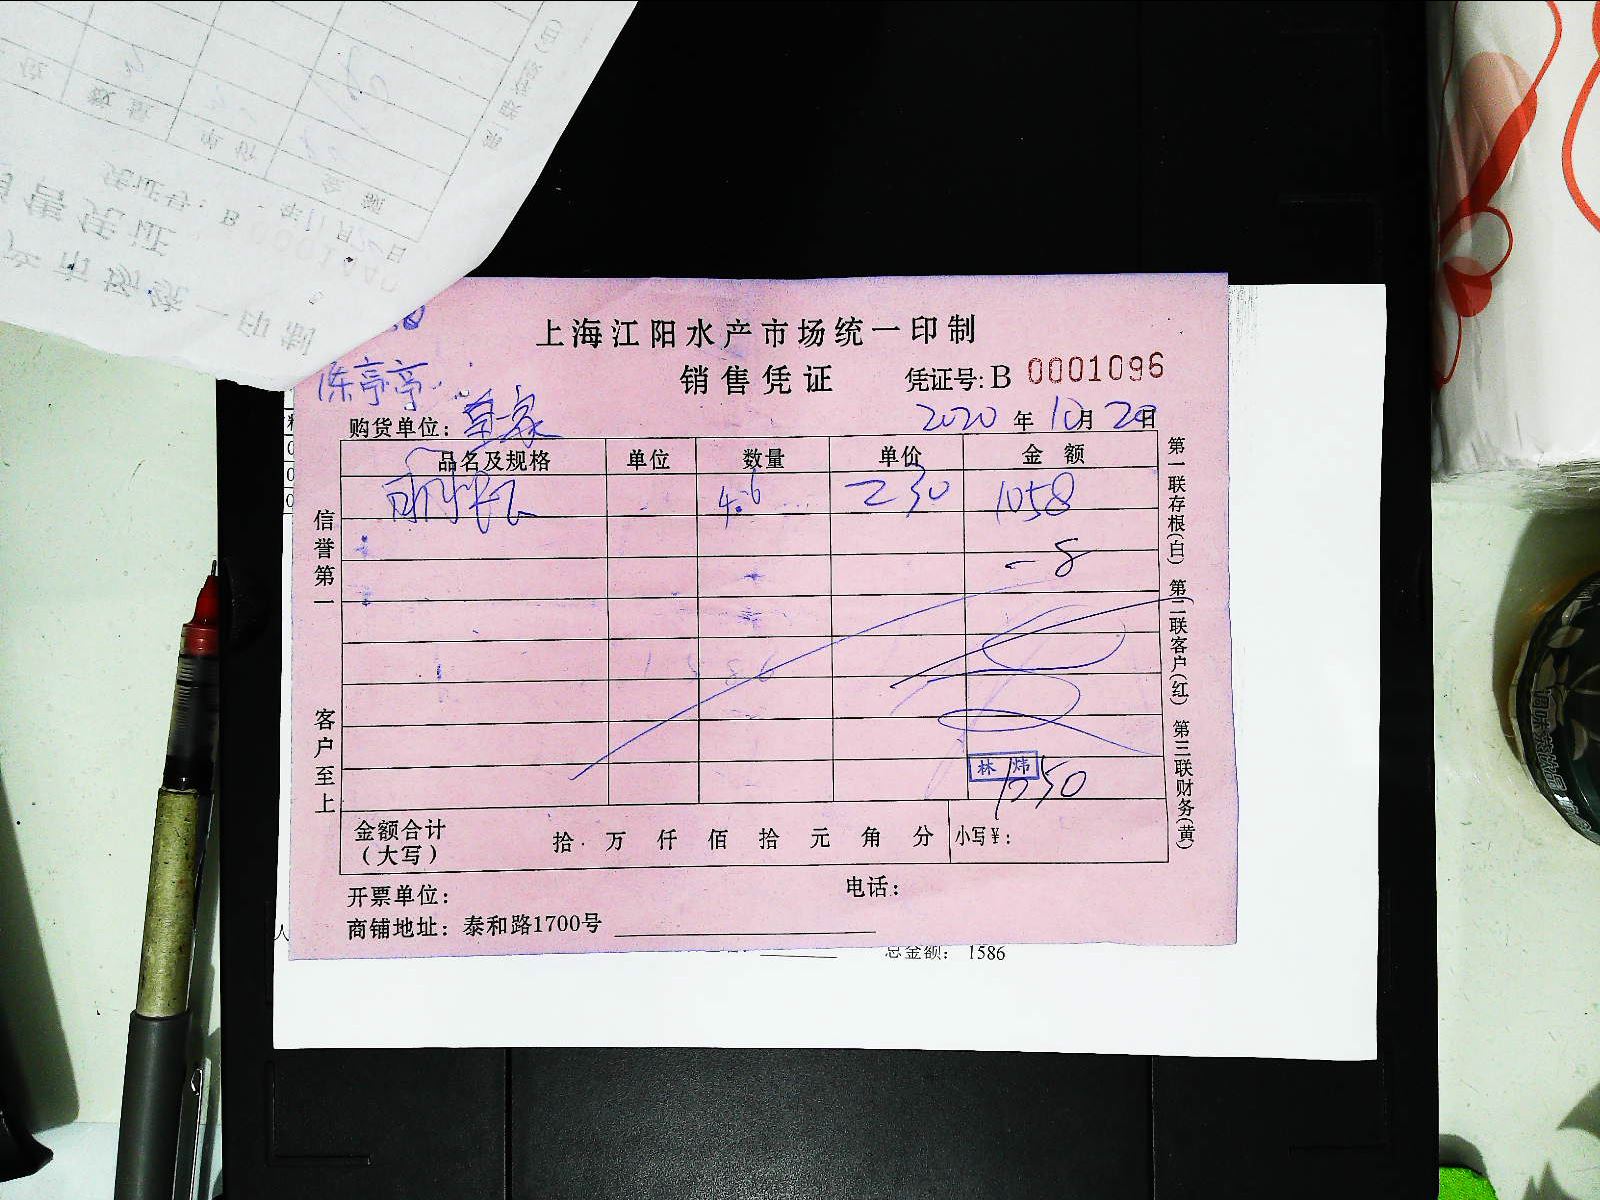 上海江阳水产市场统一印制
销售凭证 凭证号: B 0001096
陈亭亭
购货单位: 皇家 2020 年 10 月 20 日
品名及规格 单位 数量 单价 金额
4.6 230 1058
-8
林炜
1050
金额合计(大写) 拾 万 仟 佰 拾 元 角 分 小写¥:
开票单位: 电话:
商铺地址: 泰和路1700号
信誉第一
客户至上
第一联存根(白) 第二联客户(红) 第三联财务(黄)
总金额: 1586